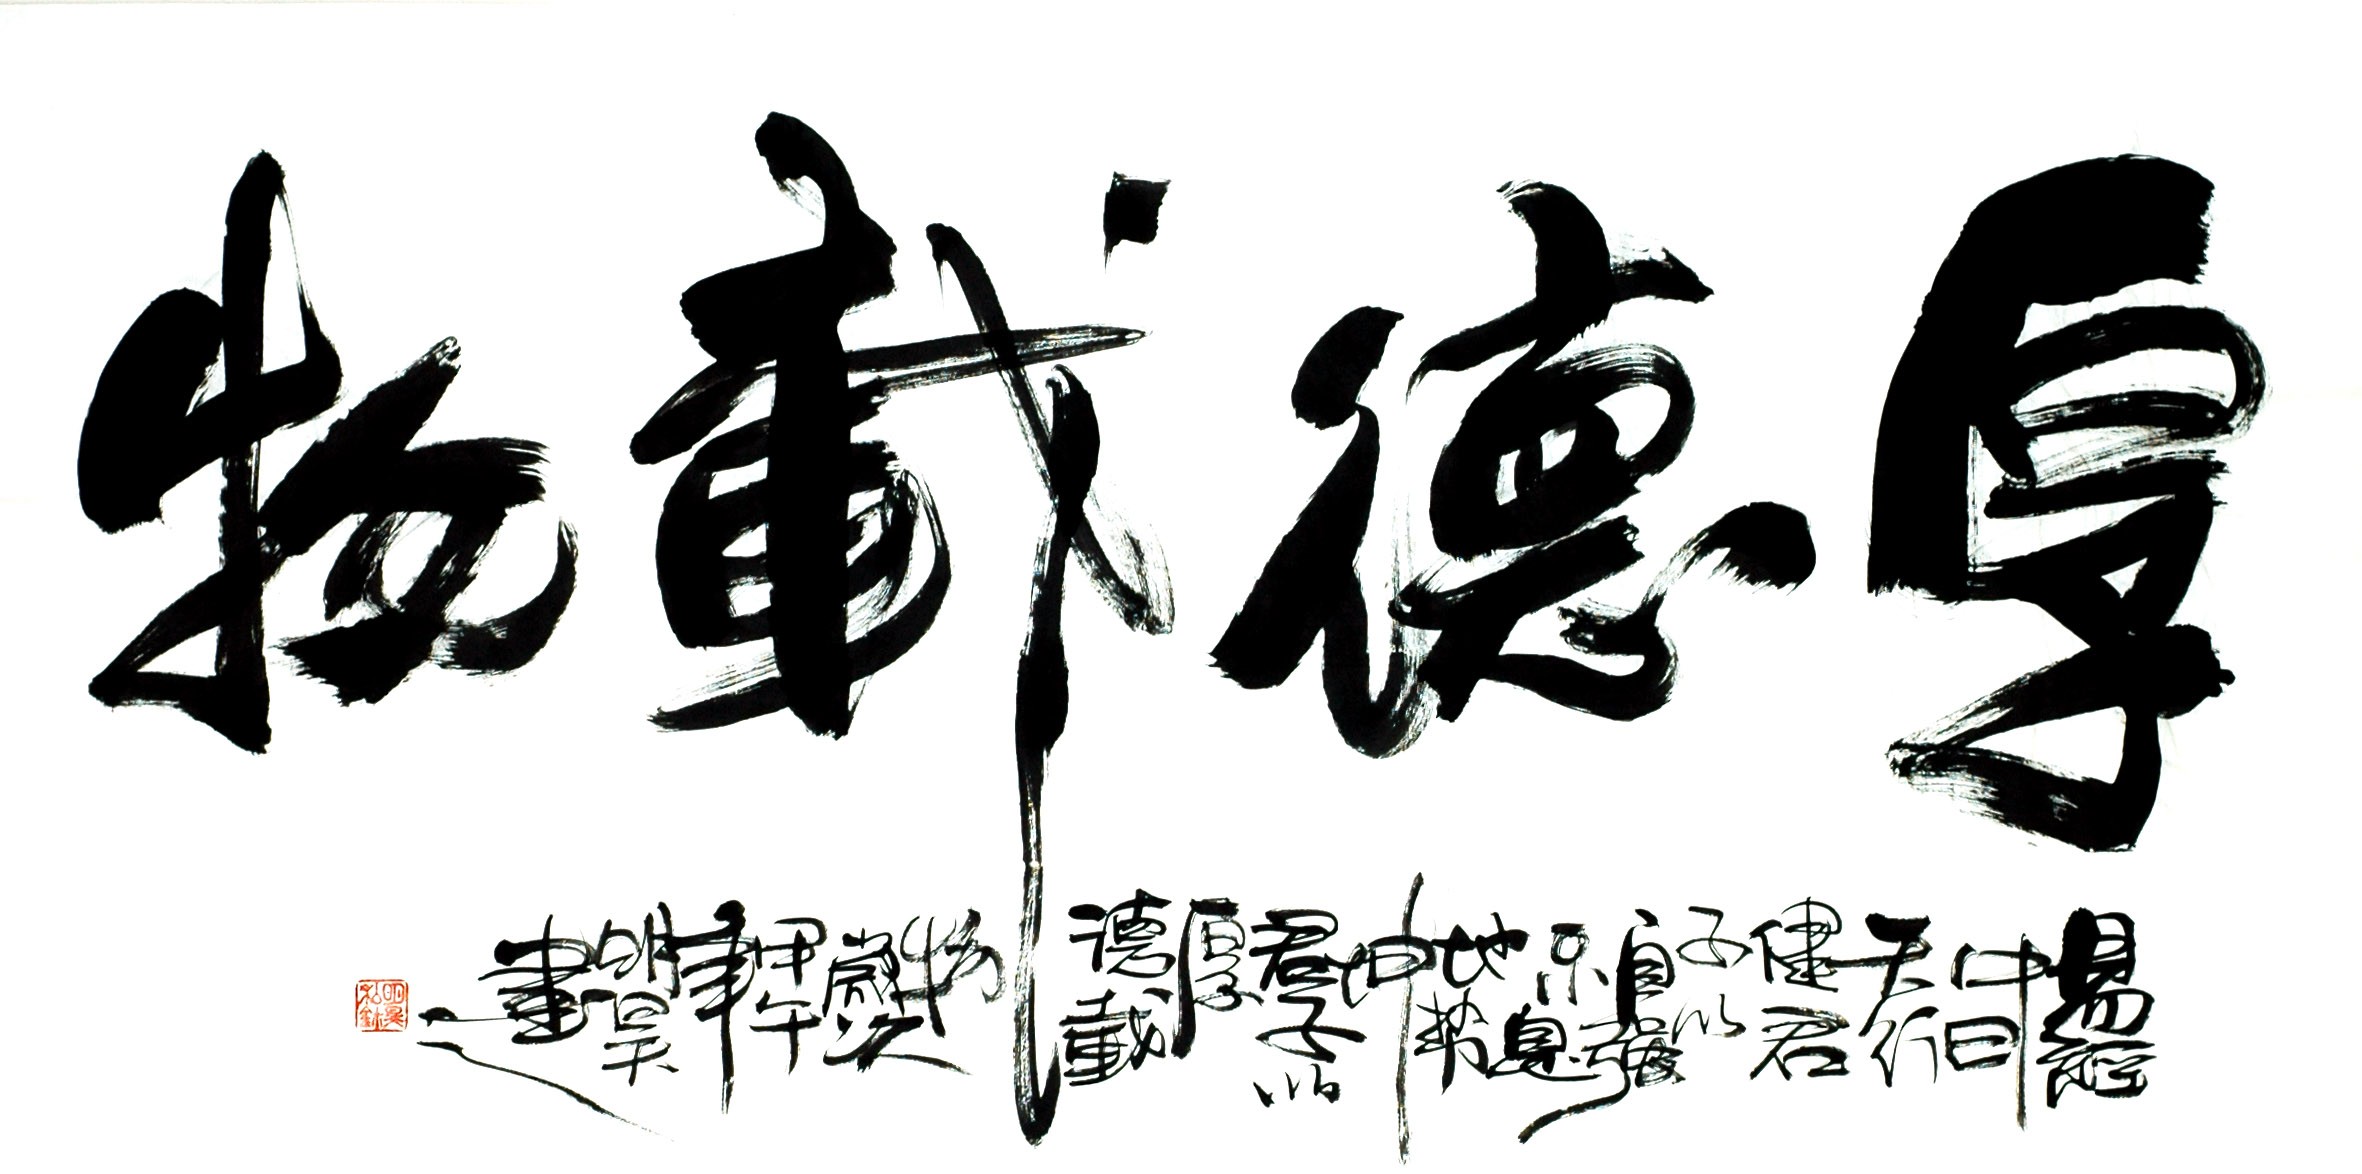 厚德載物
易經
中曰
天行
健君
子以
自強
不息
地勢
坤
君子以
厚
德載
物
歲次
甲午
年
明昊
書